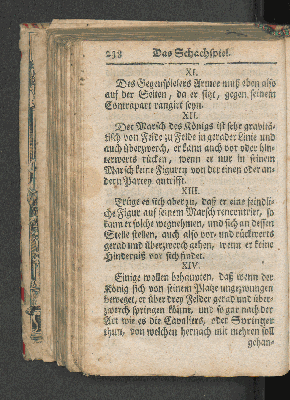 238 Das Schachspiel.
XI.
Des Gegenspielers Armee muß eben also
auf der Seiten, da er sitzt, gegen seinem
Contrapart rangirt seyn.
XII.
Der Marsch des Königs ist sehr gravitä-
tisch von Felde zu Felde in gerader Linie und
auch überzwerch, er kann auch vor oder hin-
terwerts rücken, wenn er nur in seinem
Marsch keine Figuren von der einen oder an-
dern Partey antrifft.
XIII.
Trüge es sich aber zu, daß er eine feindli-
che Figur auf seinem Marsch rencontrirt, so
kann er solche wegnehmen, und sich an dessen
Stelle stellen, auch also vor- und rückwerts
gerad und überzwerch gehen, wenn er keine
Hinderniß vor sich findet.
XIV.
Einige wollen behaupten, daß wenn der
König sich von seinem Platze ungezwungen
beweget, er über drey Felder gerad und über-
zwerch springen könne, und so gar nach der
Art wie es die Cavaliers, oder Springer
thun, von welchen hernach mit mehren soll
gehan-